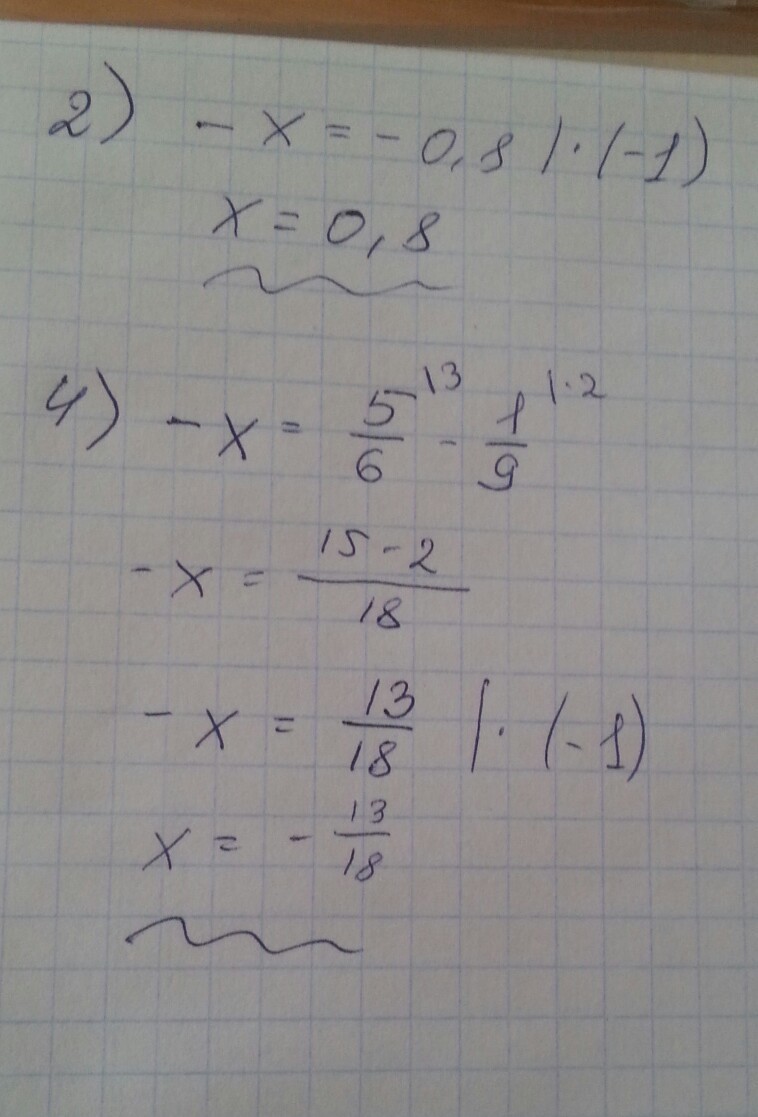 2) - x = - 0,8 | · (-1)
x = 0,8
4) - x = 5/6 |3 - 1/9 |·2
- x = 15 - 2 / 18
- x = 13/18 | · (-1)
x = - 13/18